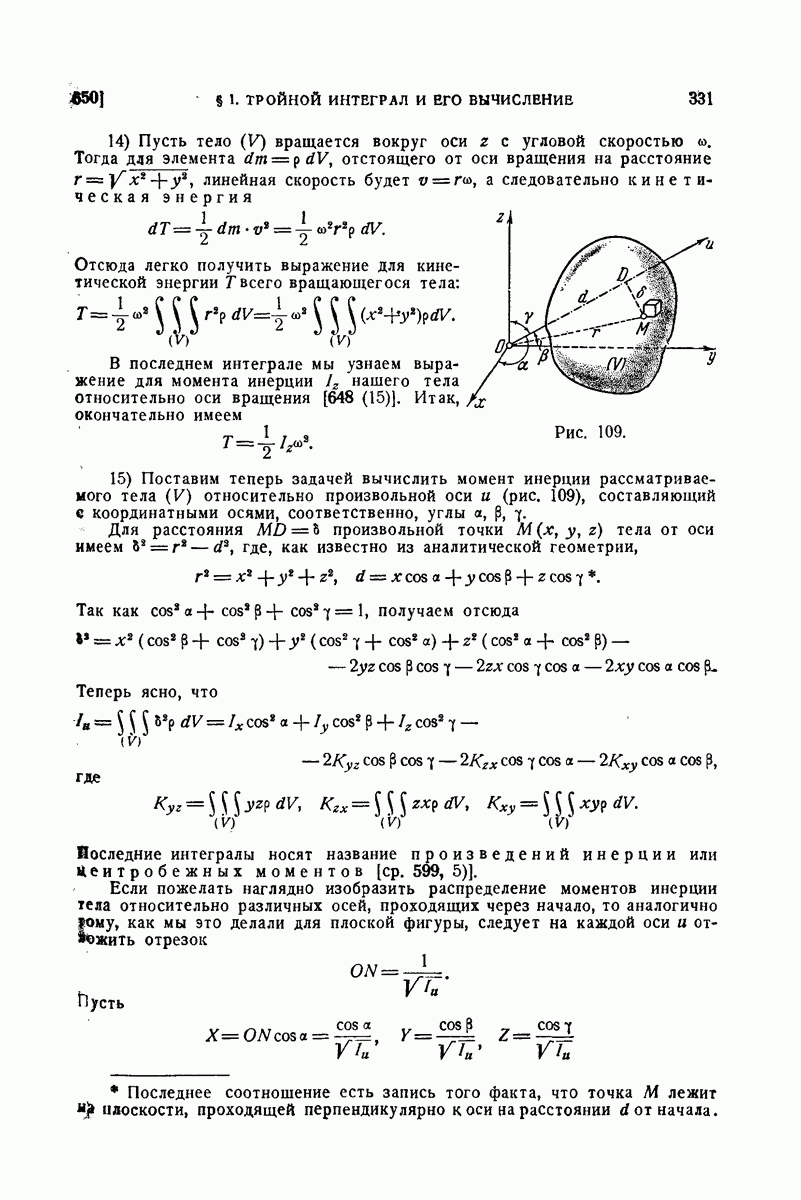 650]
§ 1. ТРОЙНОЙ ИНТЕГРАЛ И ЕГО ВЫЧИСЛЕНИЕ
331
14) Пусть тело (V) вращается вокруг оси z с угловой скоростью ω.
Тогда для элемента dm = ρ dV, отстоящего от оси вращения на расстояние
r = √(x² + y²), линейная скорость будет v = rω, а следовательно кинети-
ческая энергия
dT = 1/2 dm · v² = 1/2 ω²r²ρ dV.
Отсюда легко получить выражение для кине-
тической энергии T всего вращающегося тела:
T = 1/2 ω² ∫∫∫ r²ρ dV = 1/2 ω² ∫∫∫ (x²+y²)ρdV.
(V) (V)
В последнем интеграле мы узнаем выра-
жение для момента инерции I_z нашего тела
относительно оси вращения [648 (15)]. Итак,
окончательно имеем
T = 1/2 I_z ω².
z
u
D
d
δ
γ
r
M
O
β
y
α
(V)
x
Рис. 109.
15) Поставим теперь задачей вычислить момент инерции рассматривае-
мого тела (V) относительно произвольной оси u (рис. 109), составляющий
с координатными осями, соответственно, углы α, β, γ.
Для расстояния MD = δ произвольной точки M (x, y, z) тела от оси
имеем δ² = r² — d², где, как известно из аналитической геометрии,
r² = x² + y² + z², d = x cos α + y cos β + z cos γ *.
Так как cos² α + cos² β + cos² γ = 1, получаем отсюда
δ² = x² (cos² β + cos² γ) + y² (cos² γ + cos² α) + z² (cos² α + cos² β) —
— 2yz cos β cos γ — 2zx cos γ cos α — 2xy cos α cos β.
Теперь ясно, что
I_u = ∫∫∫ δ²ρ dV = I_x cos² α + I_y cos² β + I_z cos² γ —
(V)
— 2K_yz cos β cos γ — 2K_zx cos γ cos α — 2K_xy cos α cos β,
где
K_yz = ∫∫∫ yzρ dV, K_zx = ∫∫∫ zxρ dV, K_xy = ∫∫∫ xyρ dV.
(V) (V) (V)
Последние интегралы носят название произведений инерции или
центробежных моментов [ср. 599, 5)].
Если пожелать наглядно изобразить распределение моментов инерции
тела относительно различных осей, проходящих через начало, то аналогично
тому, как мы это делали для плоской фигуры, следует на каждой оси u от-
ложить отрезок
ON = 1/√I_u.
Пусть
X = ON cos α = cos α/√I_u, Y = cos β/√I_u, Z = cos γ/√I_u
* Последнее соотношение есть запись того факта, что точка M лежит
на плоскости, проходящей перпендикулярно к оси на расстоянии d от начала.